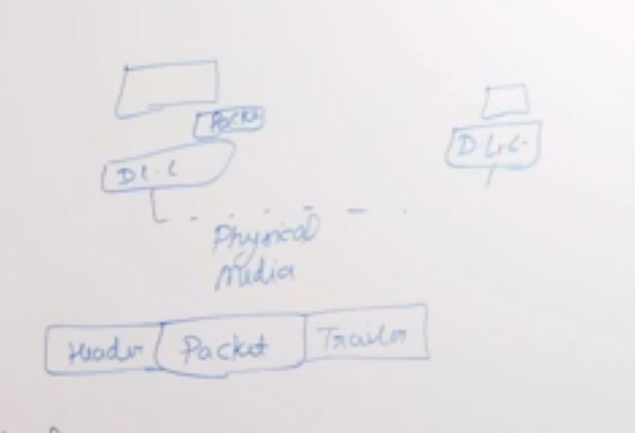 Packet
D.L.C.
D.L.L
Physical
Media
Header Packet Trailer